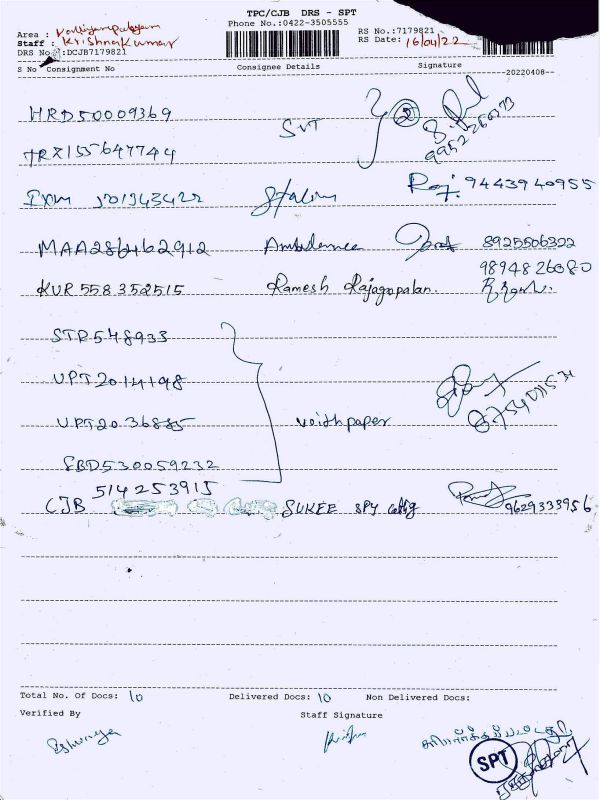 TPC/CJB DRS - SPT
Phone No.:0422-3505555
Area :
Staff : Krishnakumar
RS No.:7179821
RS Date: 16/04/22
DRS No :DCJB7179821
S No Consignment No Consignee Details Signature
20220408
HRD50009369
SVT
2
TRZ155647744
Stalin Raj. 9443940955
MAA286462912 Ambulance 8925506322
9894826080
KUR 558352515 Ramesh Rajagopalan.
STR548933
UPT20141198
UPT2036885 voithpaper
SBD530059232
514253915
CJB SUKEE SPY 9629333956
Total No. Of Docs: 10 Delivered Docs: 10 Non Delivered Docs:
Verified By Staff Signature
SPT